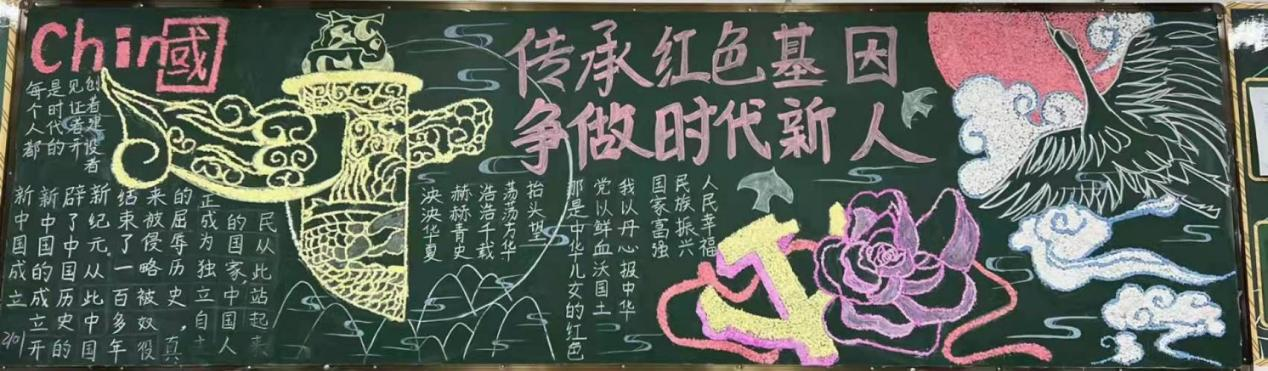 Chin國
每个人都
是时代的
见证者开
创者建设者
传承红色基因
争做时代新人
新中国成立
新中国的成立开
辟了中国历史的
新纪元。从此中国
结束了一百多年
来被侵略被奴役
的屈辱历史，真
正成为独立自主
的国家，中国人
民从此站起来
泱泱华夏
赫赫青史
浩浩千载
荡荡方华
抬头望
那是中华儿女的红色
党以鲜血沃国土
我以丹心报中华
国家富强
民族振兴
人民幸福
201